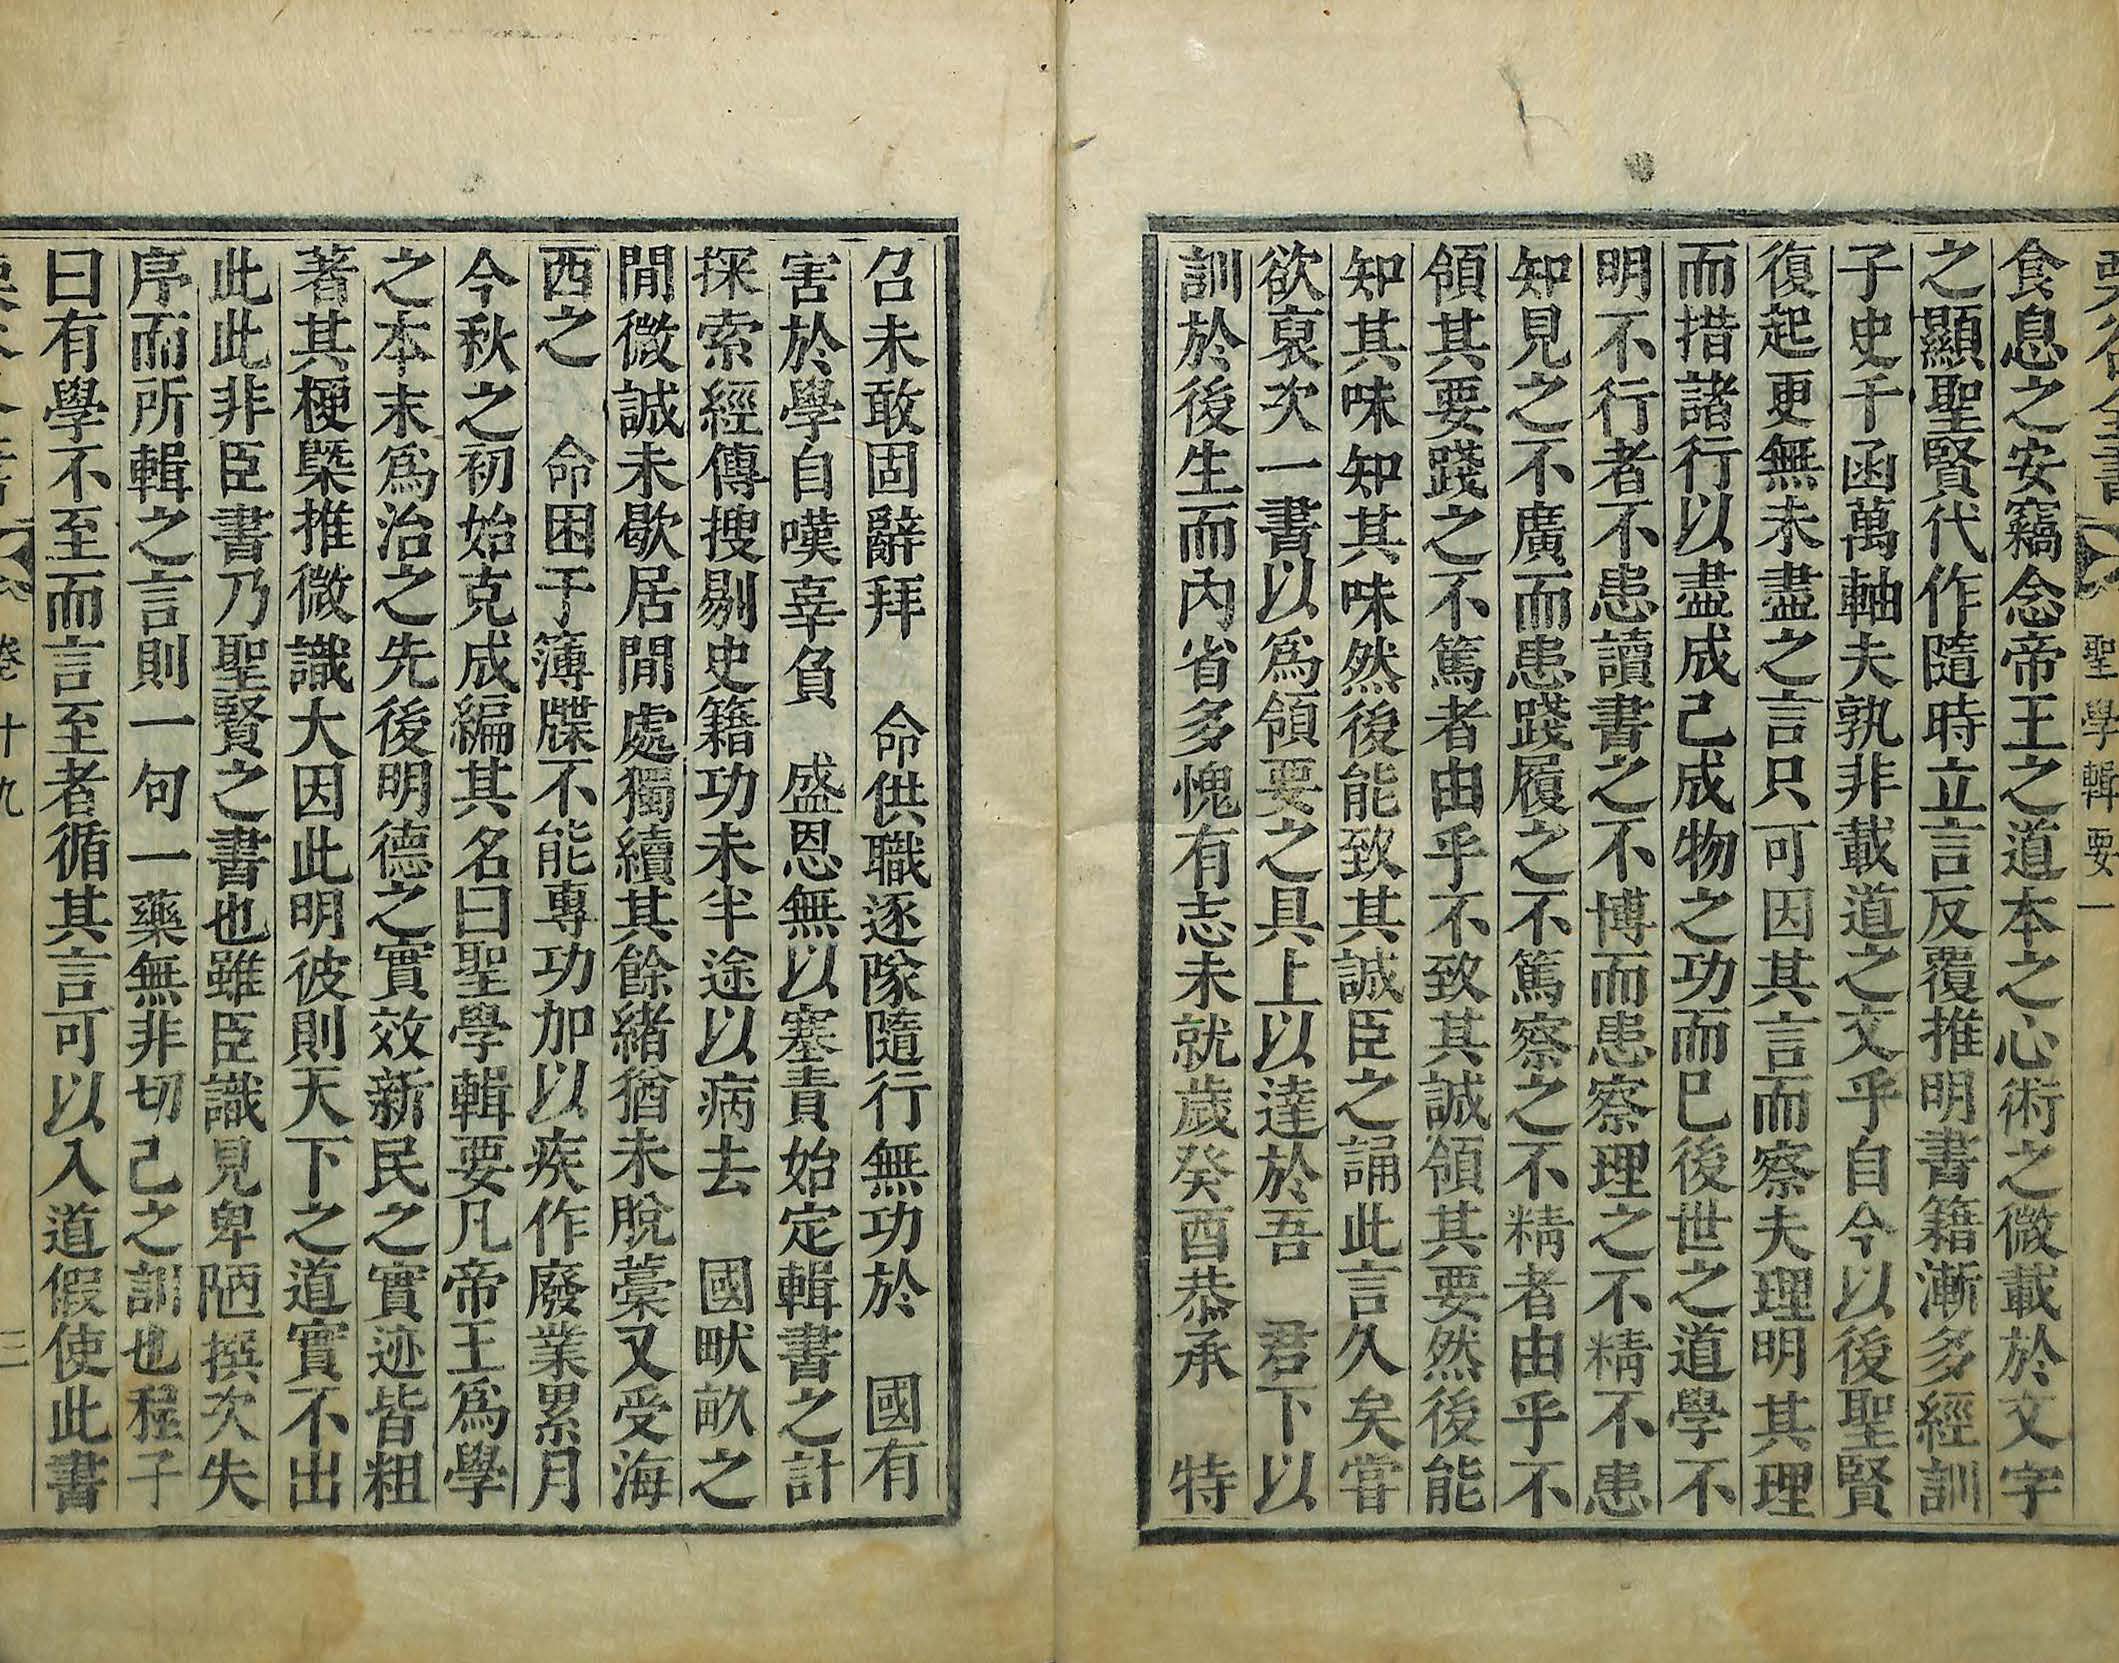 栗谷全書 聖學輯要一
食息之安竊念帝王之道本之心術之微載於文字
之顯聖賢代作隨時立言反覆推明書籍漸多經訓
子史千函萬軸夫孰非載道之文乎自今以後聖賢
復起更無未盡之言只可因其言而察夫理明其理
而措諸行以盡成己成物之功而已後世之道學不
明不行者不患讀書之不博而患察理之不精不患
知見之不廣而患踐履之不篤察之不精者由乎不
領其要踐之不篤者由乎不致其誠領其要然後能
知其味知其味然後能致其誠臣之誦此言久矣嘗
欲裒次一書以爲領要之具上以達於吾 君下以
訓於後生而內省多愧有志未就歲癸酉恭承 特
召未敢固辭拜 命供職逐隊隨行無功於 國有
害於學自嘆辜負 盛恩無以塞責始定輯書之計
探索經傳搜剔史籍功未半途以病去 國畎畝之
閒微誠未歇居閒處獨續其餘緖猶未脫藁又受海
西之 命困于簿牒不能專功加以疾作廢業累月
今秋之初始克成編其名曰聖學輯要凡帝王爲學
之本末爲治之先後明德之實效新民之實迹皆粗
著其梗槩推微識大因此明彼則天下之道實不出
此此非臣書乃聖賢之書也雖臣識見卑陋撰次失
序而所輯之言則一句一藥無非切己之訓也程子
曰有學不至而言至者循其言可以入道假使此書
栗谷全書 卷十九 三